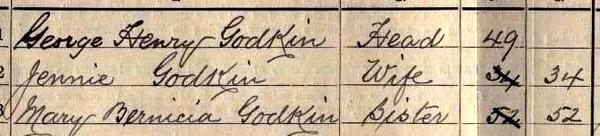 1 George Henry Godkin Head 49
2 Jennie Godkin Wife 34 34
3 Mary Bernicia Godkin Sister 52 52